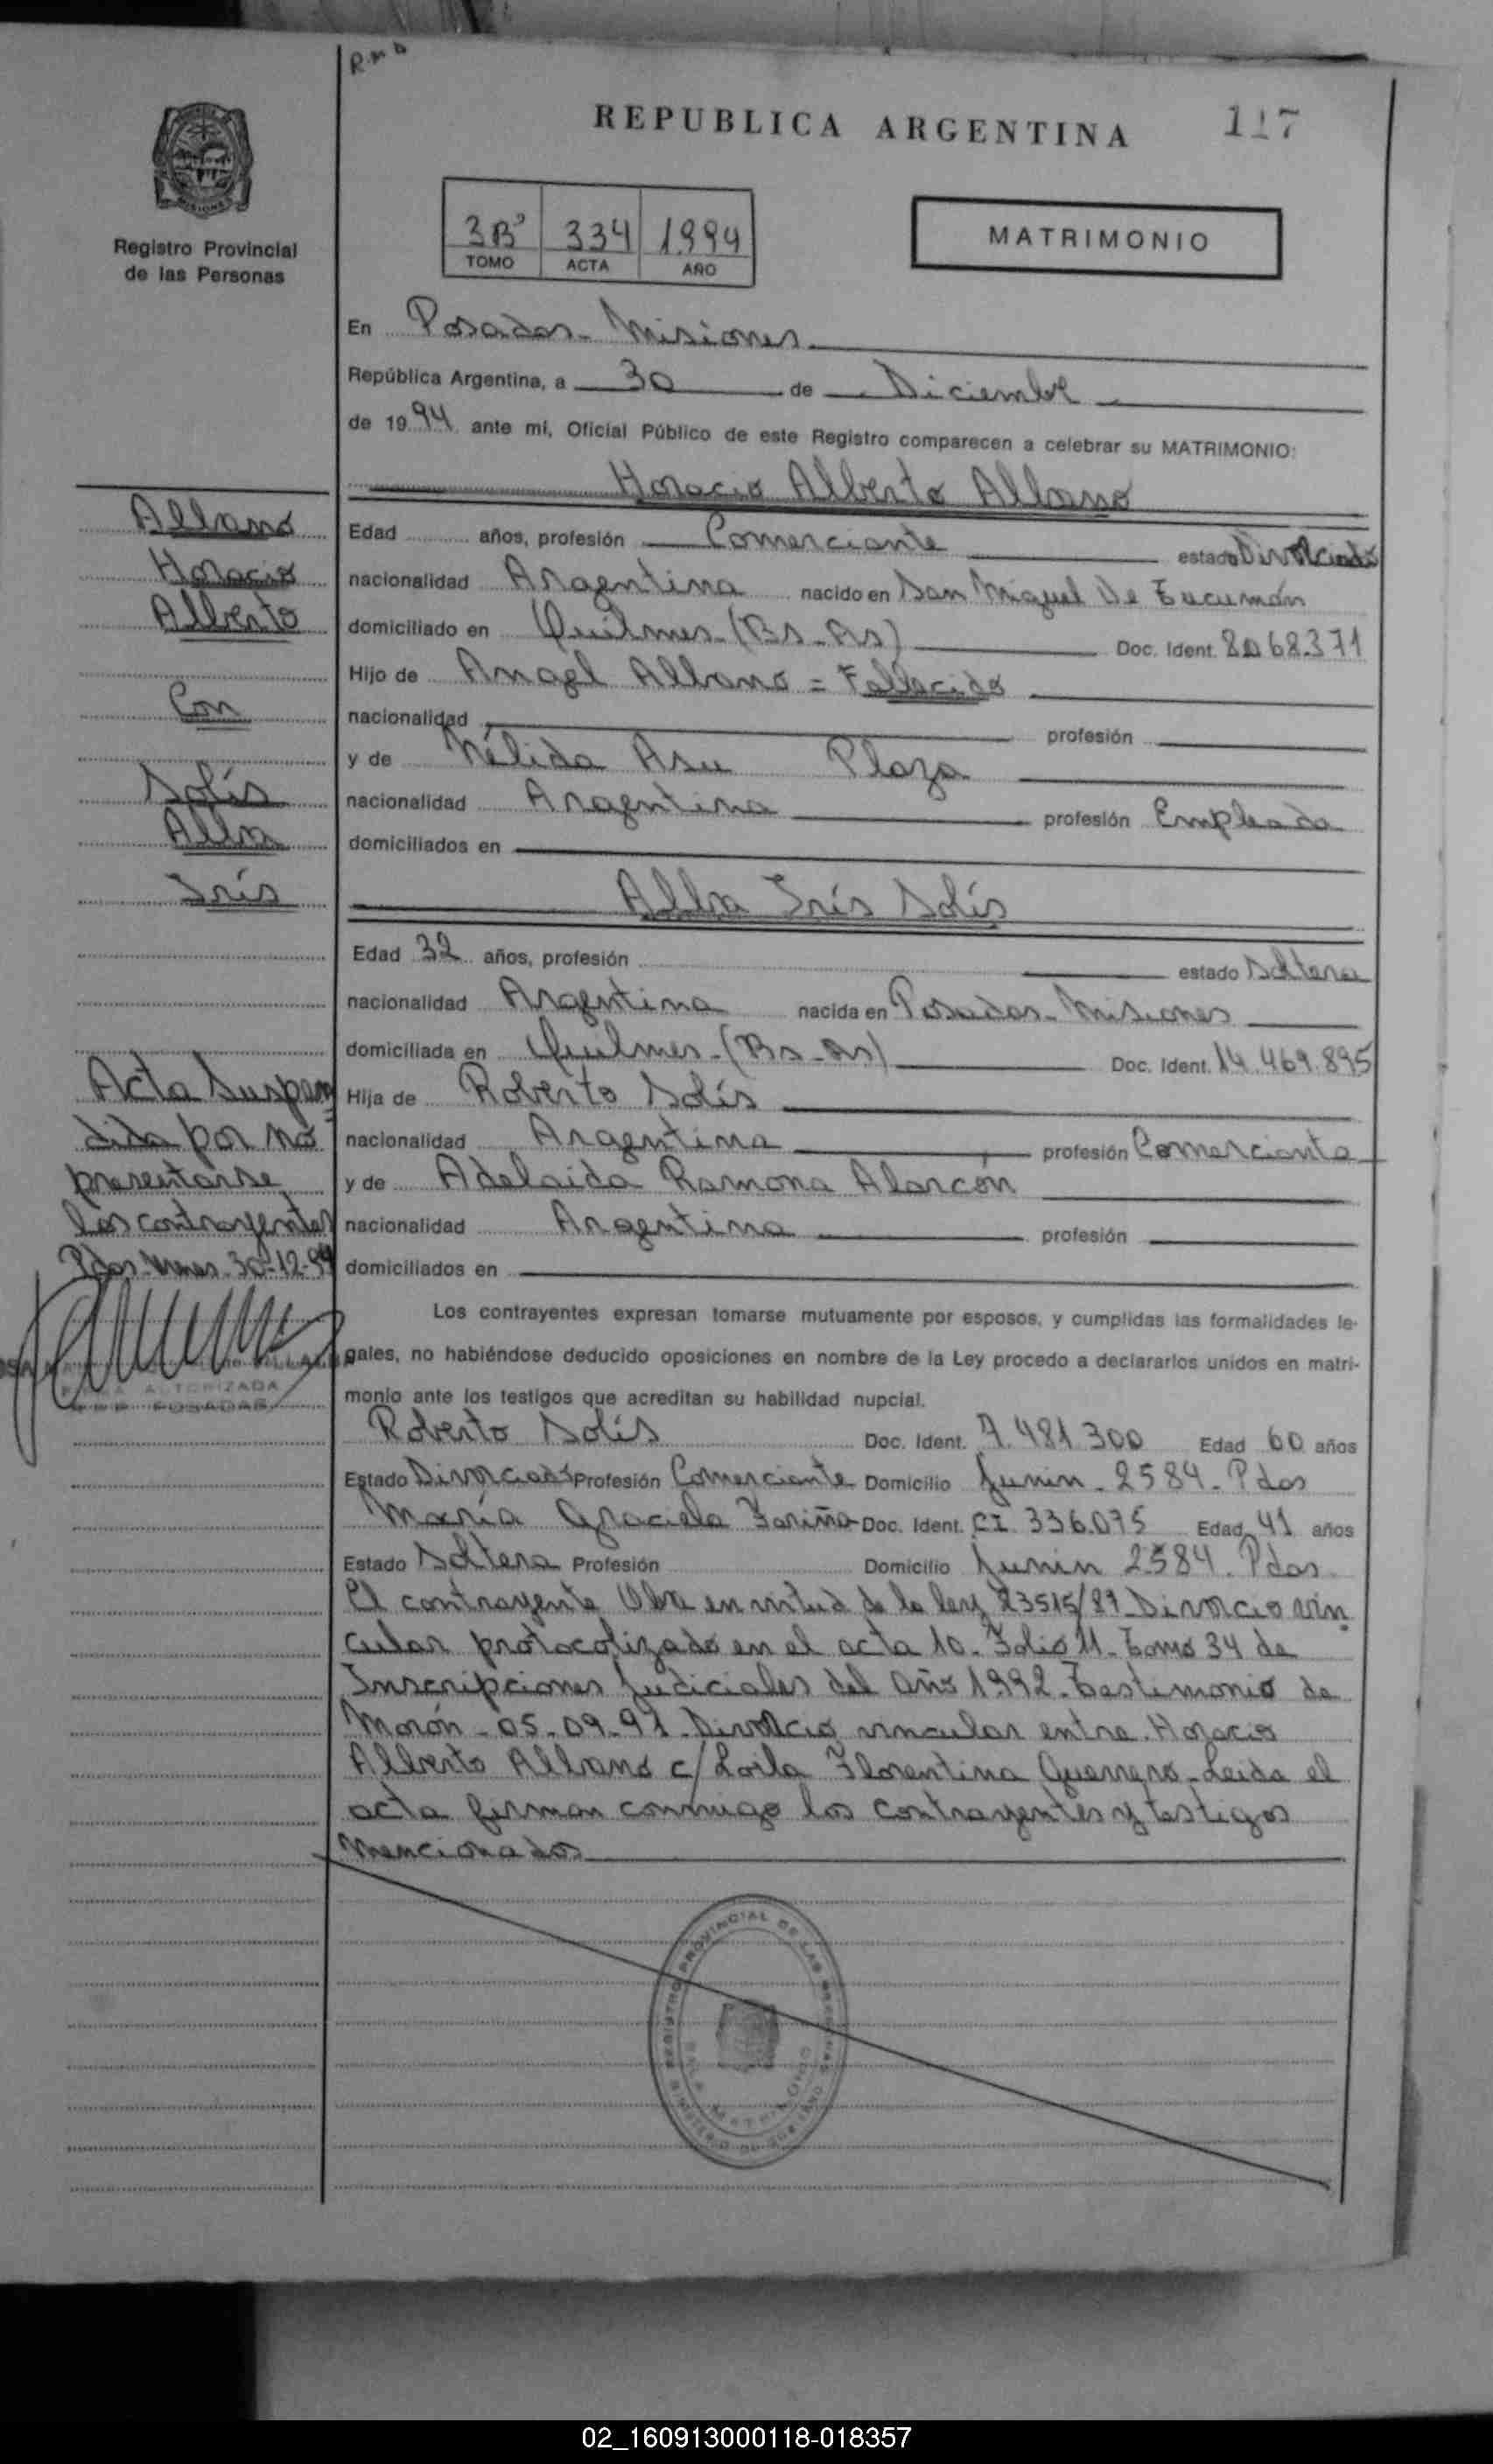 R.M.D
REPUBLICA ARGENTINA
117
MISIONES
Registro Provincial
de las Personas
3B' 334 1994
TOMO ACTA AÑO
MATRIMONIO
En Posadas - Misiones
República Argentina, a 30 de Diciembre
de 1994 ante mi, Oficial Público de este Registro comparecen a celebrar su MATRIMONIO:
Horacio Alberto Albano
Edad años, profesión Comerciante estado Divorciado
nacionalidad Argentina nacido en San Miguel De Tucumán
domiciliado en Quilmes - (Bs - As) Doc. Ident. 8.068.371
Hijo de Angel Albano = Fallecido
nacionalidad profesión
y de Nélida Asu Plaza
nacionalidad Argentina profesión Empleada
domiciliados en
Alba Inés Solís
Edad 32 años, profesión estado Soltera
nacionalidad Argentina nacida en Posadas - Misiones
domiciliada en Quilmes - (Bs - As) Doc. Ident. 14.469.895
Hija de Roberto Solís
nacionalidad Argentina profesión Comerciante
y de Adelaida Ramona Alarcón
nacionalidad Argentina profesión
domiciliados en
Los contrayentes expresan tomarse mutuamente por esposos, y cumplidas las formalidades le-
gales, no habiéndose deducido oposiciones en nombre de la Ley procedo a declararlos unidos en matri-
monio ante los testigos que acreditan su habilidad nupcial.
Roberto Solís Doc. Ident. 7.481.300 Edad 60 años
Estado Divorciado Profesión Comerciante Domicilio Junin - 2584 - Pdas
María Graciela Fariña Doc. Ident. CI. 336.075 Edad 41 años
Estado Soltera Profesión Domicilio Junin 2584. Pdas
El contrayente Obra en virtud de la ley 23515/87 - Divorcio vin
cular protocolizado en el acta 10 - Folio 11 - Tomo 34 de
Inscripciones Judiciales del Año 1992 - Testimonio de
Morón - 05-09-91 - Divorcio vincular entre Horacio
Alberto Albano c/ Florentina Guerrero - Leida el
acta firman conmigo los contrayentes y testigos
mencionados
Albano
Horacio
Alberto
Con
Solís
Alba
Inés
Acta Suspen
dida por no
presentarse
los contrayentes
Pdas Mnes 30-12-94
AUTORIZADA
POSADAS
REGISTRO PROVINCIAL DE LAS PERSONAS
MINISTERIO DE GOBIERNO
SALA MATRIMONIO
02_160913000118-018357